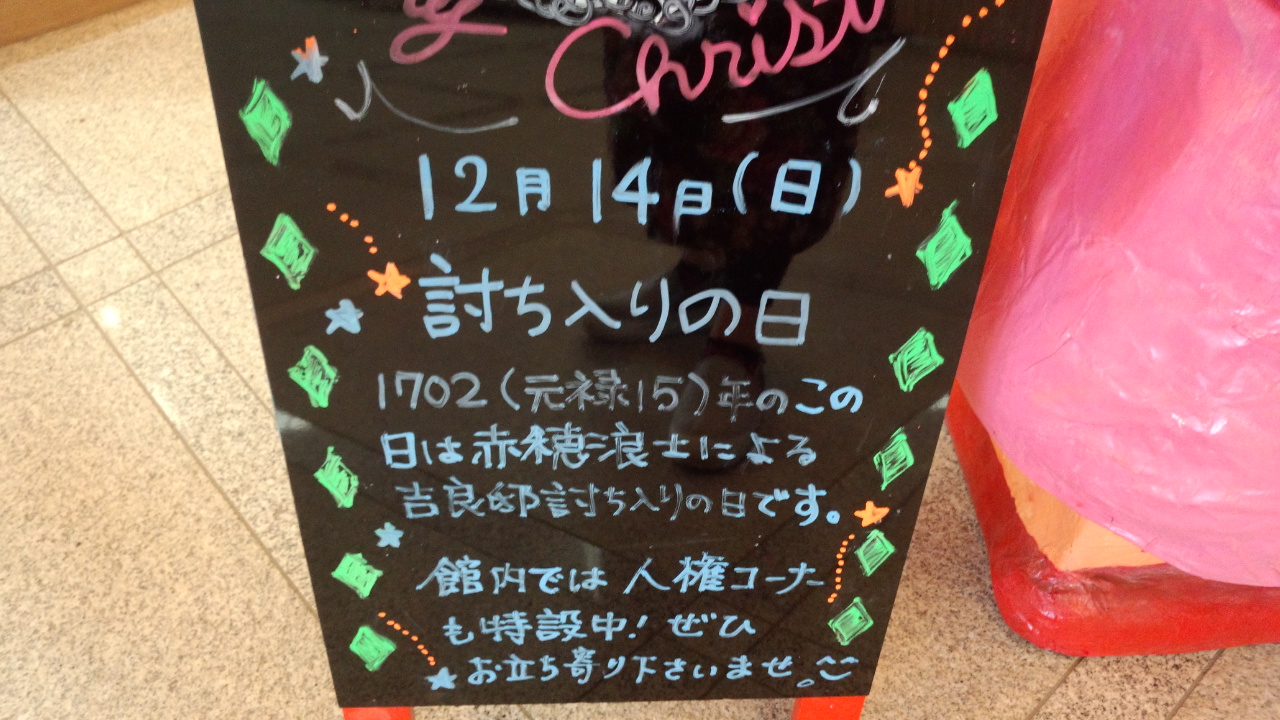 Christ
12月14日(日)
討ち入りの日
1702(元禄15)年のこの
日は赤穂浪士による
吉良邸討ち入りの日です。
館内では人権コーナー
も特設中!ぜひ
お立ち寄り下さいませ。